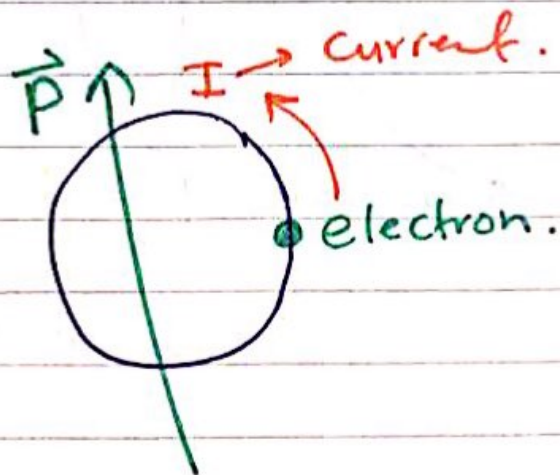 I → current.
P⃗
electron.